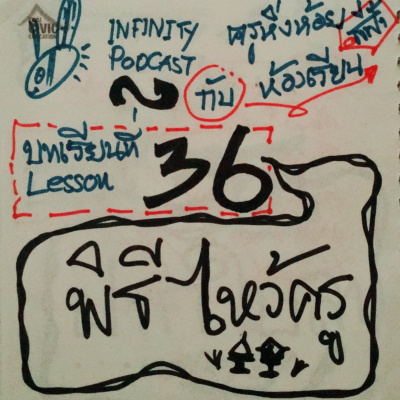 CIVIC
EDUCATION
INFINITY
PODCAST
ครูหิ่งห้อย
กับ
ห้องเรียน
สีฟ้า
บทเรียนที่
Lesson
36
พิธีไหว้ครู